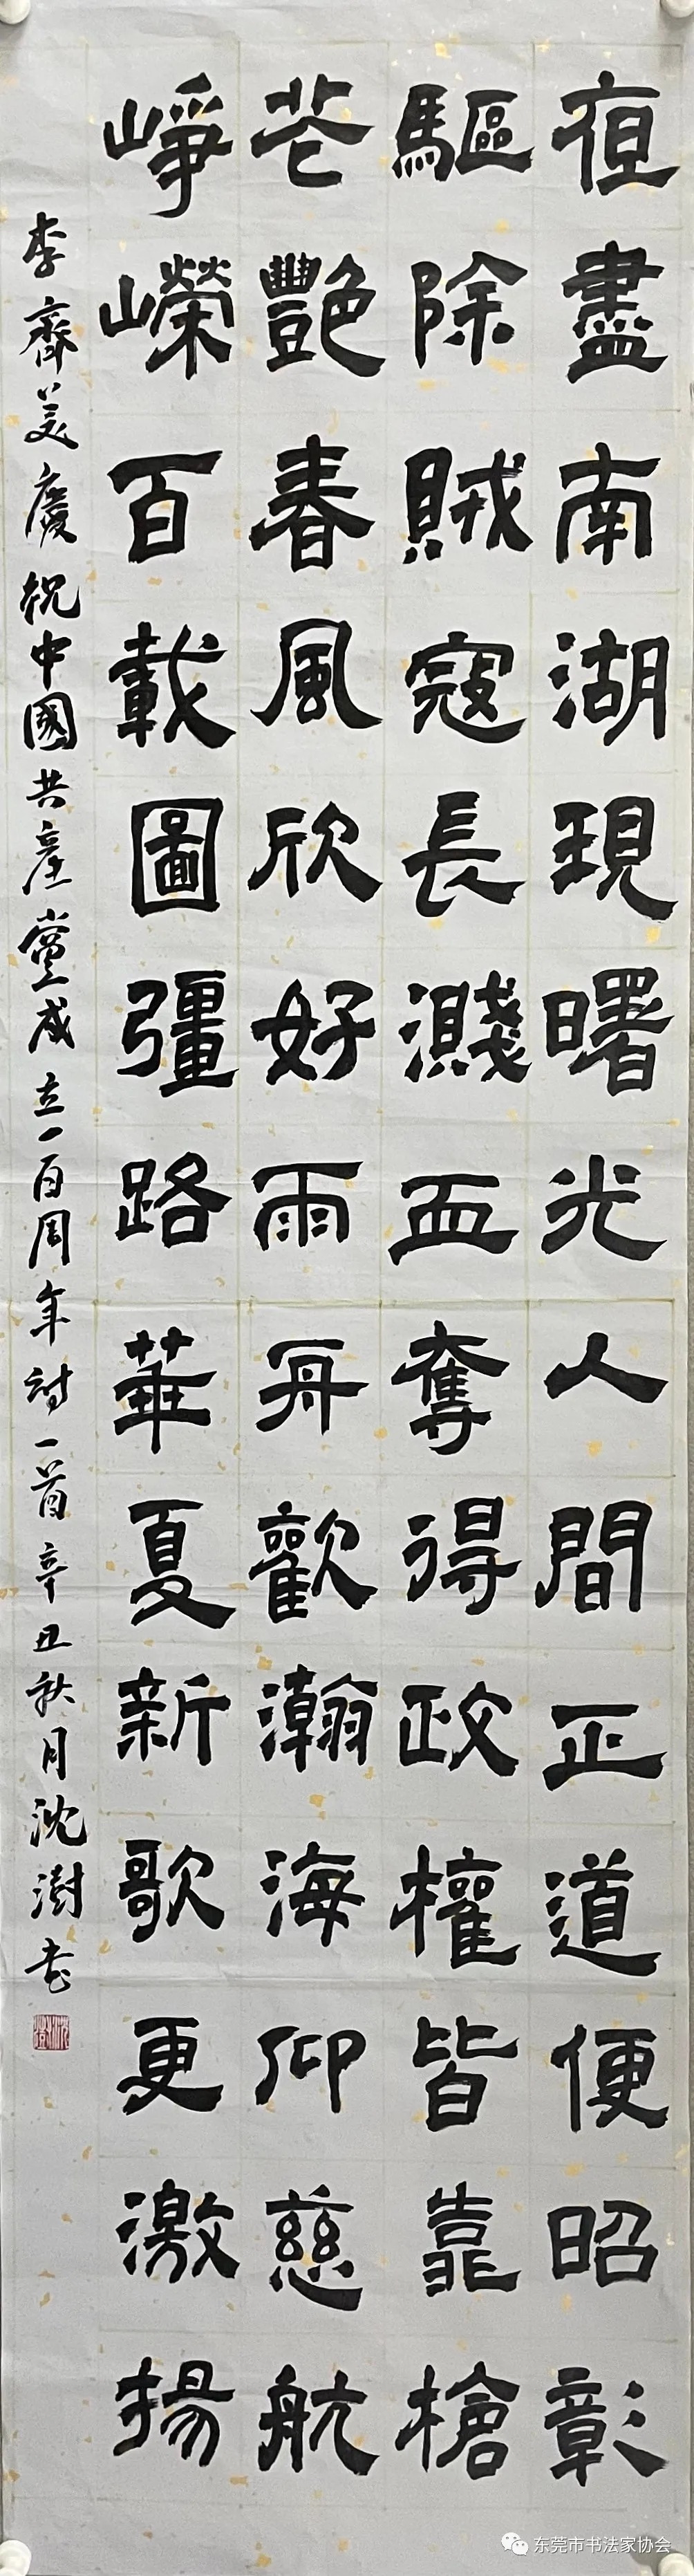 夜盡南湖現曙光人間正道便昭彰
驅除賊寇長濺血奪得政權皆靠槍
花艷春風欣好雨舟歡瀚海仰慈航
崢嶸百載圖彊路華夏新歌更激揚
李齊美慶祝中國共產黨成立一百周年詩一首辛丑秋月沈澍書
东莞市书法家协会